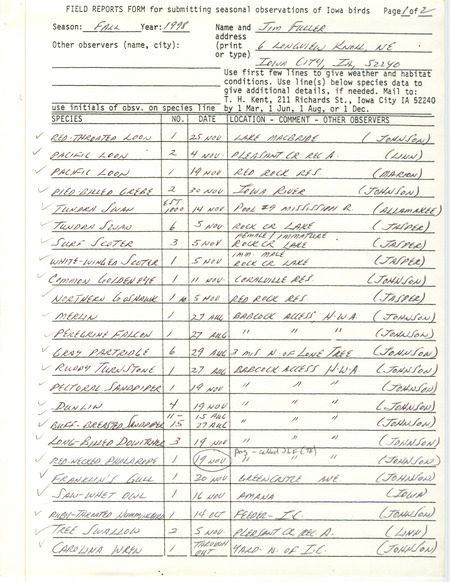 FIELD REPORTS FORM for submitting seasonal observations of Iowa birds Page 1 of 2
Season: FALL Year: 1998 Name and JIM FULLER
Other observers (name, city): address
(print 6 LONGVIEW KNOLL, NE
or type) IOWA CITY, IA, 52240
Use first few lines to give weather and habitat
conditions. Use line(s) below species data to
give additional details, if needed. Mail to:
T. H. Kent, 211 Richards St., Iowa City IA 52240
use initials of obsv. on species line by 1 Mar, 1 Jun, 1 Aug, or 1 Dec.
SPECIES NO. DATE LOCATION - COMMENT - OTHER OBSERVERS
RED-THROATED LOON 1 25 NOV LAKE MACBRIDE (JOHNSON)
PACIFIC LOON 2 4 NOV PLEASANT CR. REC A. (LINN)
PACIFIC LOON 1 19 NOV RED ROCK RES (MARION)
PIED-BILLED GREBE 2 30 NOV IOWA RIVER (JOHNSON)
TUNDRA SWAN EST 1000 14 NOV POOL #9 MISSISSIPPI R. (ALLAMAKEE)
TUNDRA SWAN 6 5 NOV ROCK CR LAKE (JASPER)
SURF SCOTER 3 5 NOV FEMALE / IMMATURE ROCK CR. LAKE (JASPER)
WHITE-WINGED SCOTER 1 5 NOV IMM. MALE ROCK CR LAKE (JASPER)
COMMON GOLDENEYE 1 11 NOV CORALVILLE RES. (JOHNSON)
NORTHERN GOSHAWK 1 5 NOV RED ROCK RES (JASPER)
MERLIN 1 27 AUG BABCOCK ACCESS H.W.A. (JOHNSON)
PEREGRINE FALCON 1 27 AUG " " " (JOHNSON)
GRAY PARTRIDGE 6 29 AUG 3 MIS N. OF LONE TREE (JOHNSON)
RUDDY TURNSTONE 1 27 AUG BABCOCK ACCESS H.W.A (JOHNSON)
PECTORAL SANDPIPER 1 19 NOV " " " (JOHNSON)
DUNLIN 4 19 NOV " " " (JOHNSON)
BUFF-BREASTED SANDPIPER 11-15 15 AUG 27 AUG " " " (JOHNSON)
LONG-BILLED DOWITCHER 3 19 NOV " " " (JOHNSON)
RED-NECKED PHALAROPE 1 19 NOV " " (JOHNSON)
FRANKLIN'S GULL 1 20 NOV GREENCASTLE AVE (JOHNSON)
SAW-WHET OWL 1 16 NOV AMANA (IOWA)
RUBY-THROATED HUMMINGBIRD 1 14 OCT FEEDER - I.C. (JOHNSON)
TREE SWALLOW 2 5 NOV PLEASANT CR. REC A. (LINN)
CAROLINA WREN 1 THROUGH OUT YARD - N. OF I.C. (JOHNSON)